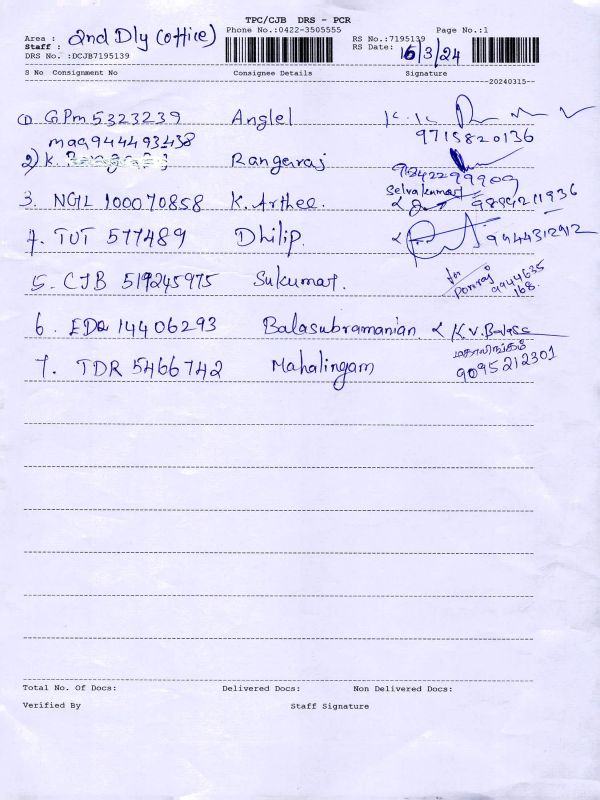 TPC/CJB DRS - PCR
Area : 2nd Dly (office) Phone No.:0422-3505555 RS No.:7195139 Page No.:1
Staff : RS Date: 15/3/24
DRS No. :DCJB7195139
S No Consignment No Consignee Details Signature
20240315
1) GPM 5323239 Anglel
9715820136
maa944493438
2) K. Rangaraj
9842299909
Selvakumar
3. NGIL 100070858 K. Arthee. 9894211936
4. TUT 577489 Dhilip. 9944312912
5. CJB 519245975 Sukumar. for Ponraj 9944635168
6. EDQ 14406293 Balasubramanian K V. Balass
7. TDR 5466742 Mahalingam மகாலிங்கம்
9095212301
Total No. Of Docs: Delivered Docs: Non Delivered Docs:
Verified By Staff Signature